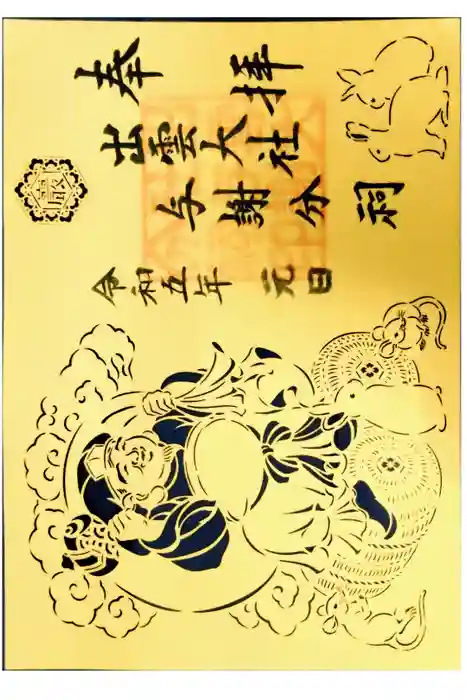 奉拝
出雲大社
与謝分祠
令和五年 元日